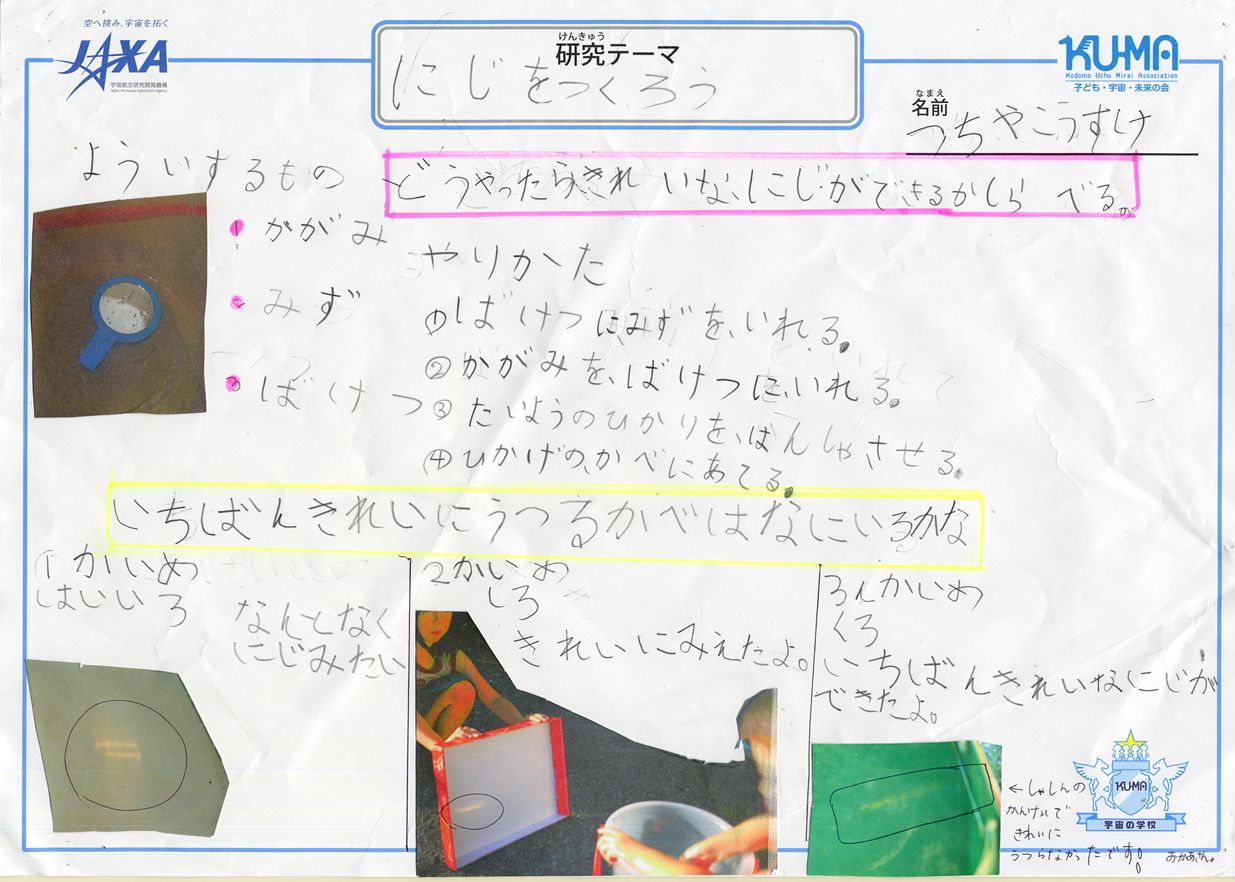 空へ挑み、宇宙を拓く
JAXA
宇宙航空研究開発機構
Japan Aerospace Exploration Agency
けんきゅう
研究テーマ
にじをつくろう
KU-MA
Kodomo Uchu Mirai Association
子ども・宇宙・未来の会
なまえ
名前
つちやこうすけ
よういするもの
どうやったらきれいな、にじができるかしらべる。
1 かがみ
2 みず
3 ばけつ
やりかた
①ばけつにみずを、いれる。
②かがみを、ばけつに、いれる。
③たいようのひかりを、はんしゃさせる。
④ひかげの、かべにあてる。
いちばんきれいにうつるかべはなにいろかな
1かいめ
はいいろ
なんとなく
にじみたい
2かいめ
しろ
きれいにみえたよ。
3んかいめ
くろ
いちばんきれいなにじが
できたよ。
←しゃしんの
かんけいで
きれいに
うつらなかったです。
おかあさん。
KUMA
宇宙の学校